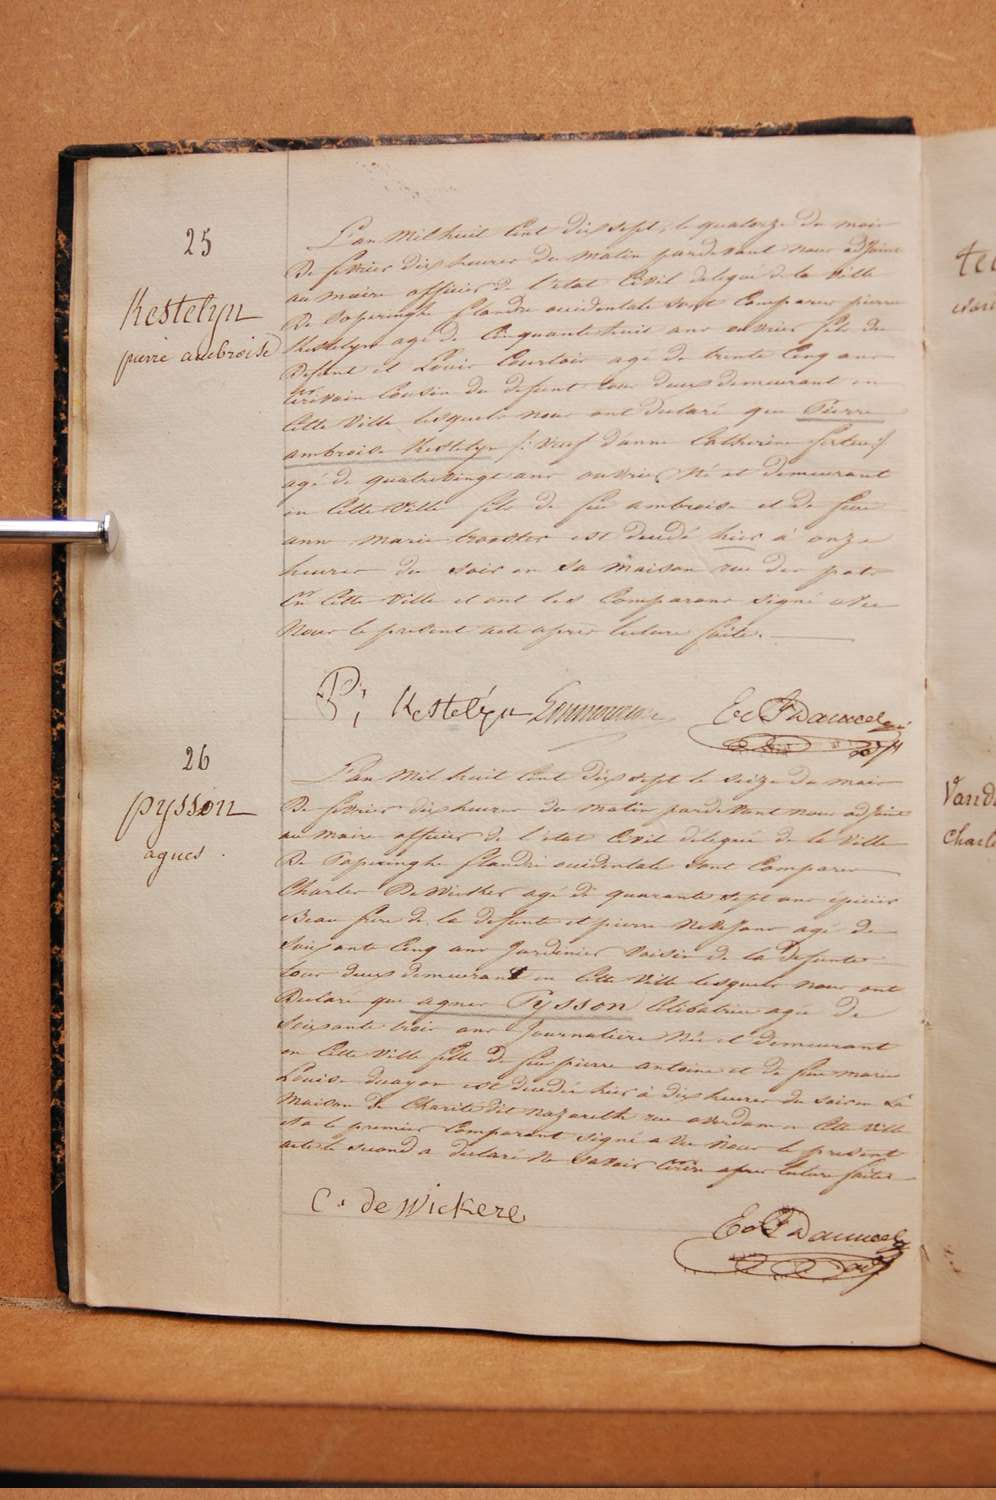 25
Kestelyn
pierre ambroise
L'an mil huit cent dix sept, le quatorze du mois
de fevrier dix heures du matin pardevant nous adjoint
au maire officier de l'etat civil delegué de la ville
de Poperinghe flandre occidentale sont comparus pierre
Kestelyn agé de cinquante huit ans ouvrier fils du
defunt et Louis Courtois agé de trente cinq ans
ecrivain cousin du defunt tous deux demeurant en
cette ville lesquels nous ont declaré que Pierre
ambroise Kestelyn /: veuf d'anne Catherine :/
agé de quatrevingt ans ouvrier né et demeurant
en cette ville fils de feu ambroise et de feue
ann marie trooster est decedé hier à onze
heures du soir en sa maison rue des pots
en cette ville et ont les comparans signé avec
nous le present acte apres lecture faite.
P; Kestelyn
26
pysson
agnes
L'an mil huit cent dix sept le seize du mois
de fevrier dix heures du matin pardevant nous adjoint
au maire officier de l'etat civil delegué de la ville
de Poperinghe flandre occidentale sont comparus
Charles De Wicker agé de quarante sept ans épicier
Beau frere de la defunte et pierre agé de
soixante cinq ans Jardinier voisin de la defunte
tous deux demeurant en cette ville lesquels nous ont
declaré que agnes Pysson celibataire agée de
soixante trois ans Journaliere née et demeurant
en cette ville fille de feu pierre antoine et de feue marie
Louise est decedée hier à dix heures du soir en la
maison de Charité dit nazareth rue en cette ville
et a le premier comparant signé avec nous le present
acte le second a declaré ne savoir ecrire apres lecture faite
C. de Wickere
Vand
Charle